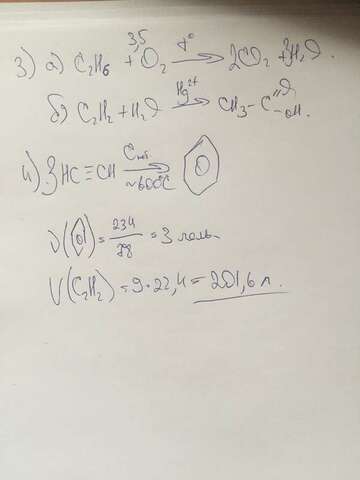 3) а) C₂H₆ + 3,5 O₂ →t° 2CO₂ + 3H₂O.
б) C₂H₂ + H₂O →Hg²⁺ CH₃ – C =O – OH.
4) 3HC≡CH →C акт. ~600°C
ν( ) = 234/78 = 3 моль.
V(C₂H₂) = 9·22,4 = 201,6 л.